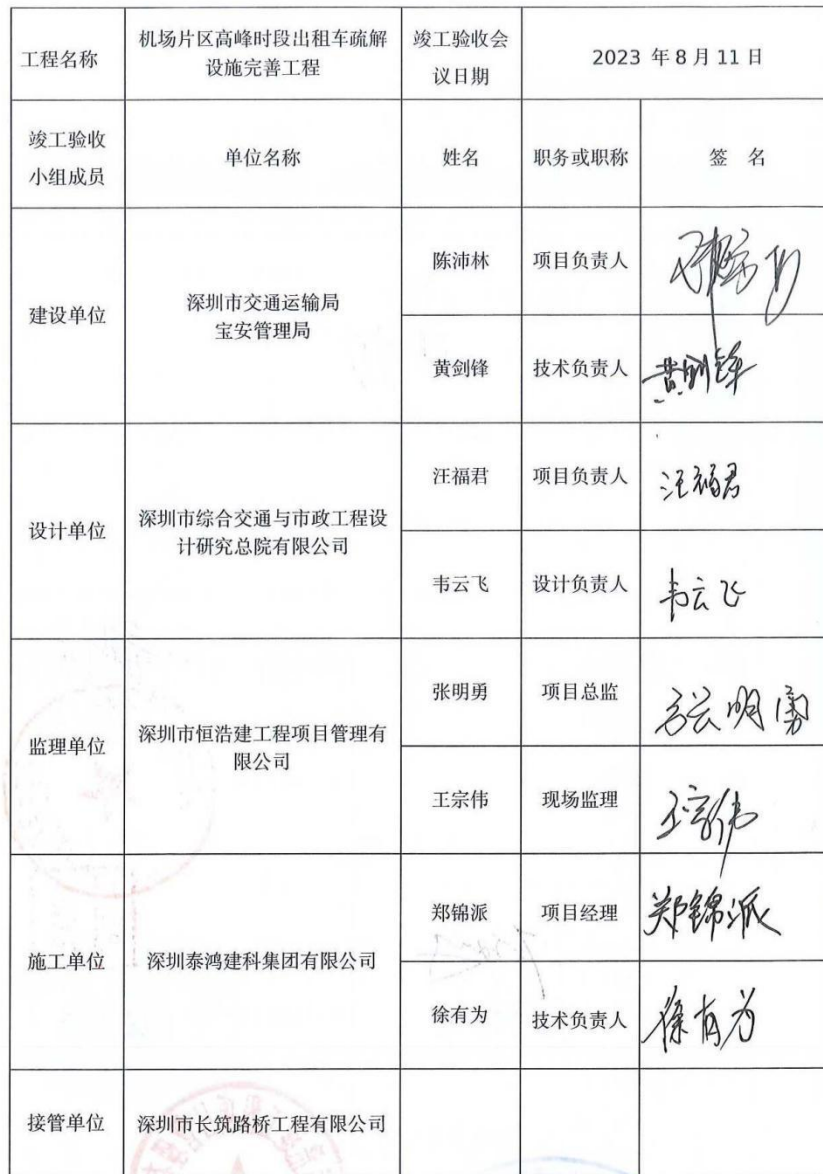 工程名称
机场片区高峰时段出租车疏解
设施完善工程
竣工验收会
议日期
2023 年 8 月 11 日
竣工验收
小组成员
单位名称
姓名
职务或职称
签 名
建设单位
深圳市交通运输局
宝安管理局
陈沛林
项目负责人
黄剑锋
技术负责人
黄剑锋
设计单位
深圳市综合交通与市政工程设
计研究总院有限公司
汪福君
项目负责人
汪福君
韦云飞
设计负责人
韦云飞
监理单位
深圳市恒浩建工程项目管理有
限公司
张明勇
项目总监
张明勇
王宗伟
现场监理
王宗伟
施工单位
深圳泰鸿建科集团有限公司
郑锦派
项目经理
郑锦派
徐有为
技术负责人
徐有为
接管单位
深圳市长筑路桥工程有限公司